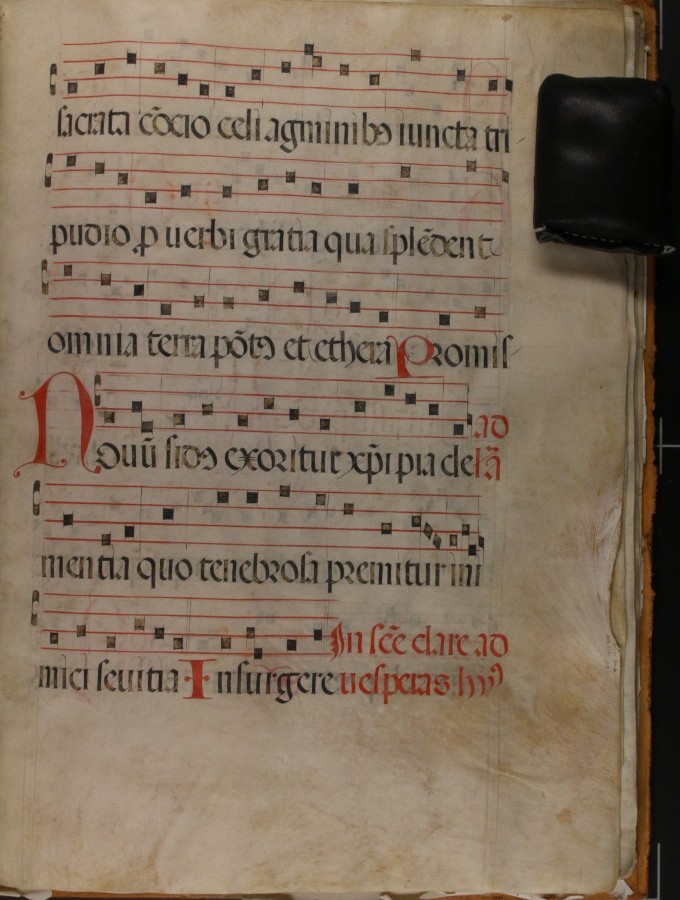 sacrata cōcio celi agminibꝰ iuncta tri
pudio ꝓ uerbi gratia qua splēdent
omnia terra pōtꝰ et ethera Promis
ad
Nouū sidꝰ exoritur xp̄i pia de lā
mentia quo tenebrosa premitur ini
In scē clare ad
mici seuitia Insurgere uesperas hyꝰ